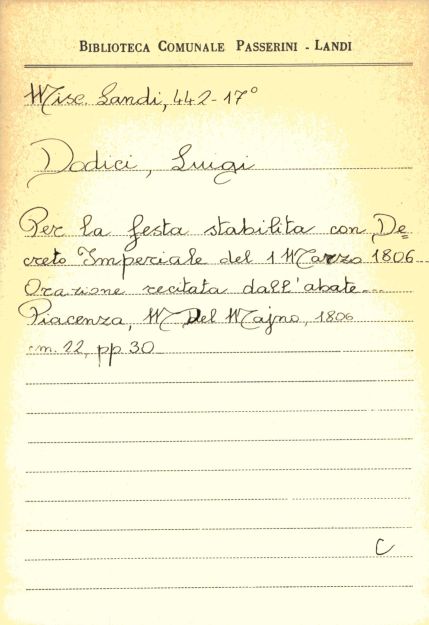 BIBLIOTECA COMUNALE PASSERINI - LANDI
Misc. Landi, 442-17°
Dodici, Luigi
Per la festa stabilita con De=
creto Imperiale del 1 Marzo 1806
Orazione recitata dall'abate...
Piacenza, M Del Majno, 1806
cm. 22, pp 30
C